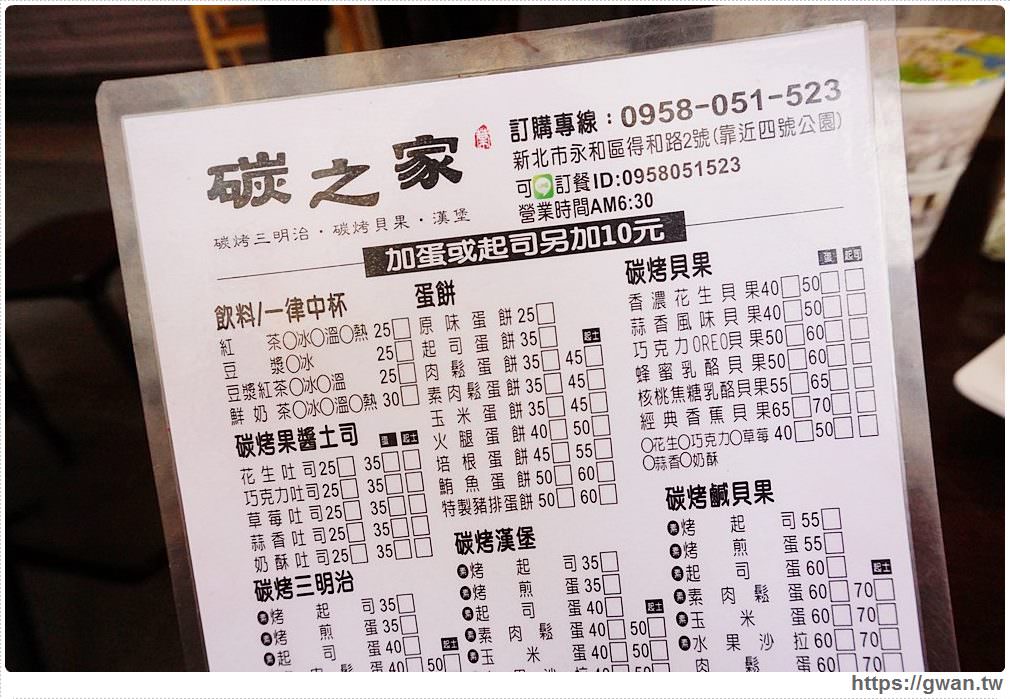 碳之家
碳烤三明治·碳烤貝果·漢堡
訂購專線：0958-051-523
新北市永和區得和路2號(靠近四號公園)
可 訂餐ID:0958051523
營業時間AM6:30
加蛋或起司另加10元
飲料/一律中杯
紅 茶○冰○溫○熱 25□
豆 漿○冰 25□
豆漿紅茶○冰○溫 25□
鮮奶茶○冰○溫○熱 30□
碳烤果醬土司 蛋 起士
花生吐司25□ 35□□
巧克力吐司25□ 35□□
草莓吐司25□ 35□□
蒜香吐司25□ 35□□
奶酥吐司25□ 35□□
碳烤三明治
素烤起司35□
素烤煎蛋35□ 起士
素起司蛋40□
肉鬆蛋40□50□
蛋餅
原味蛋餅25□
起司蛋餅35□ 起士
肉鬆蛋餅35□ 45□
素肉鬆蛋餅35□ 45□
玉米蛋餅35□ 45□
火腿蛋餅40□ 50□
培根蛋餅45□ 55□
鮪魚蛋餅50□ 60□
特製豬排蛋餅50□ 60□
碳烤漢堡
素烤起司35□
素烤煎蛋35□
素起司蛋40□ 起士
素素肉鬆蛋40□50□
素玉米蛋40□50□
碳烤貝果 蛋 起司
香濃花生貝果40□50□□
蒜香風味貝果40□50□□
巧克力OREO貝果50□60□□
蜂蜜乳酪貝果50□60□□
核桃焦糖乳酪貝果55□65□□
經典香蕉貝果65□70□□
○花生○巧克力○草莓 40□50□□
○蒜香○奶酥
碳烤鹹貝果
素烤起司55□
素烤煎蛋55□
素起司蛋60□ 起士
素素肉鬆蛋60□70□
素玉米蛋60□70□
素水果沙拉60□70□
肉鬆蛋60□70□
https://gwan.tw